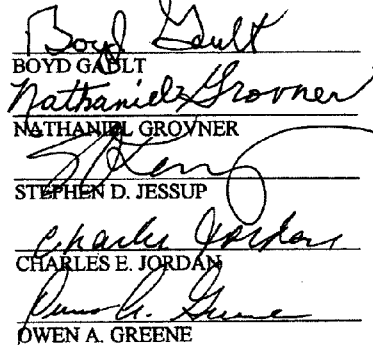 Boyd Gault
BOYD GAULT
Nathaniel Grovner
NATHANIEL GROVNER
STEPHEN D. JESSUP
Charles Jordan
CHARLES E. JORDAN
Owen A. Greene
OWEN A. GREENE